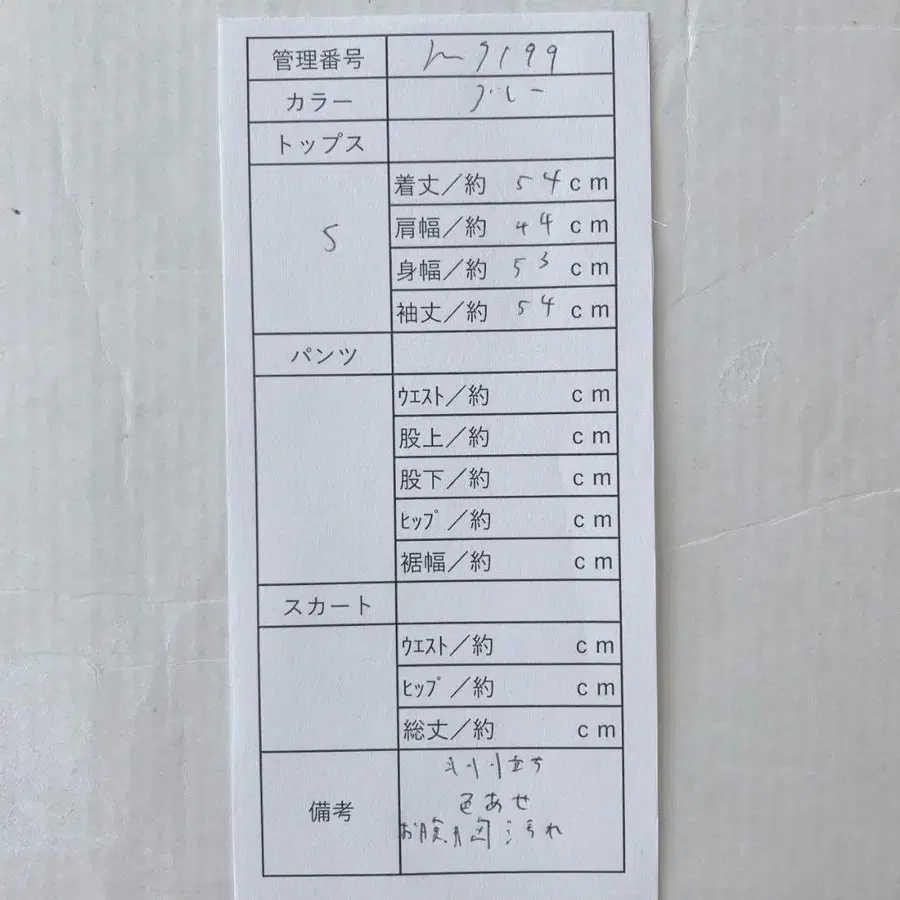 管理番号
カラー グレー
トップス
S
着丈／約 54 cm
肩幅／約 44 cm
身幅／約 53 cm
袖丈／約 54 cm
パンツ
ｳｴｽﾄ／約 cm
股上／約 cm
股下／約 cm
ﾋｯﾌﾟ／約 cm
裾幅／約 cm
スカート
ｳｴｽﾄ／約 cm
ﾋｯﾌﾟ／約 cm
総丈／約 cm
備考
立ち
色あせ
お腹 汚れ